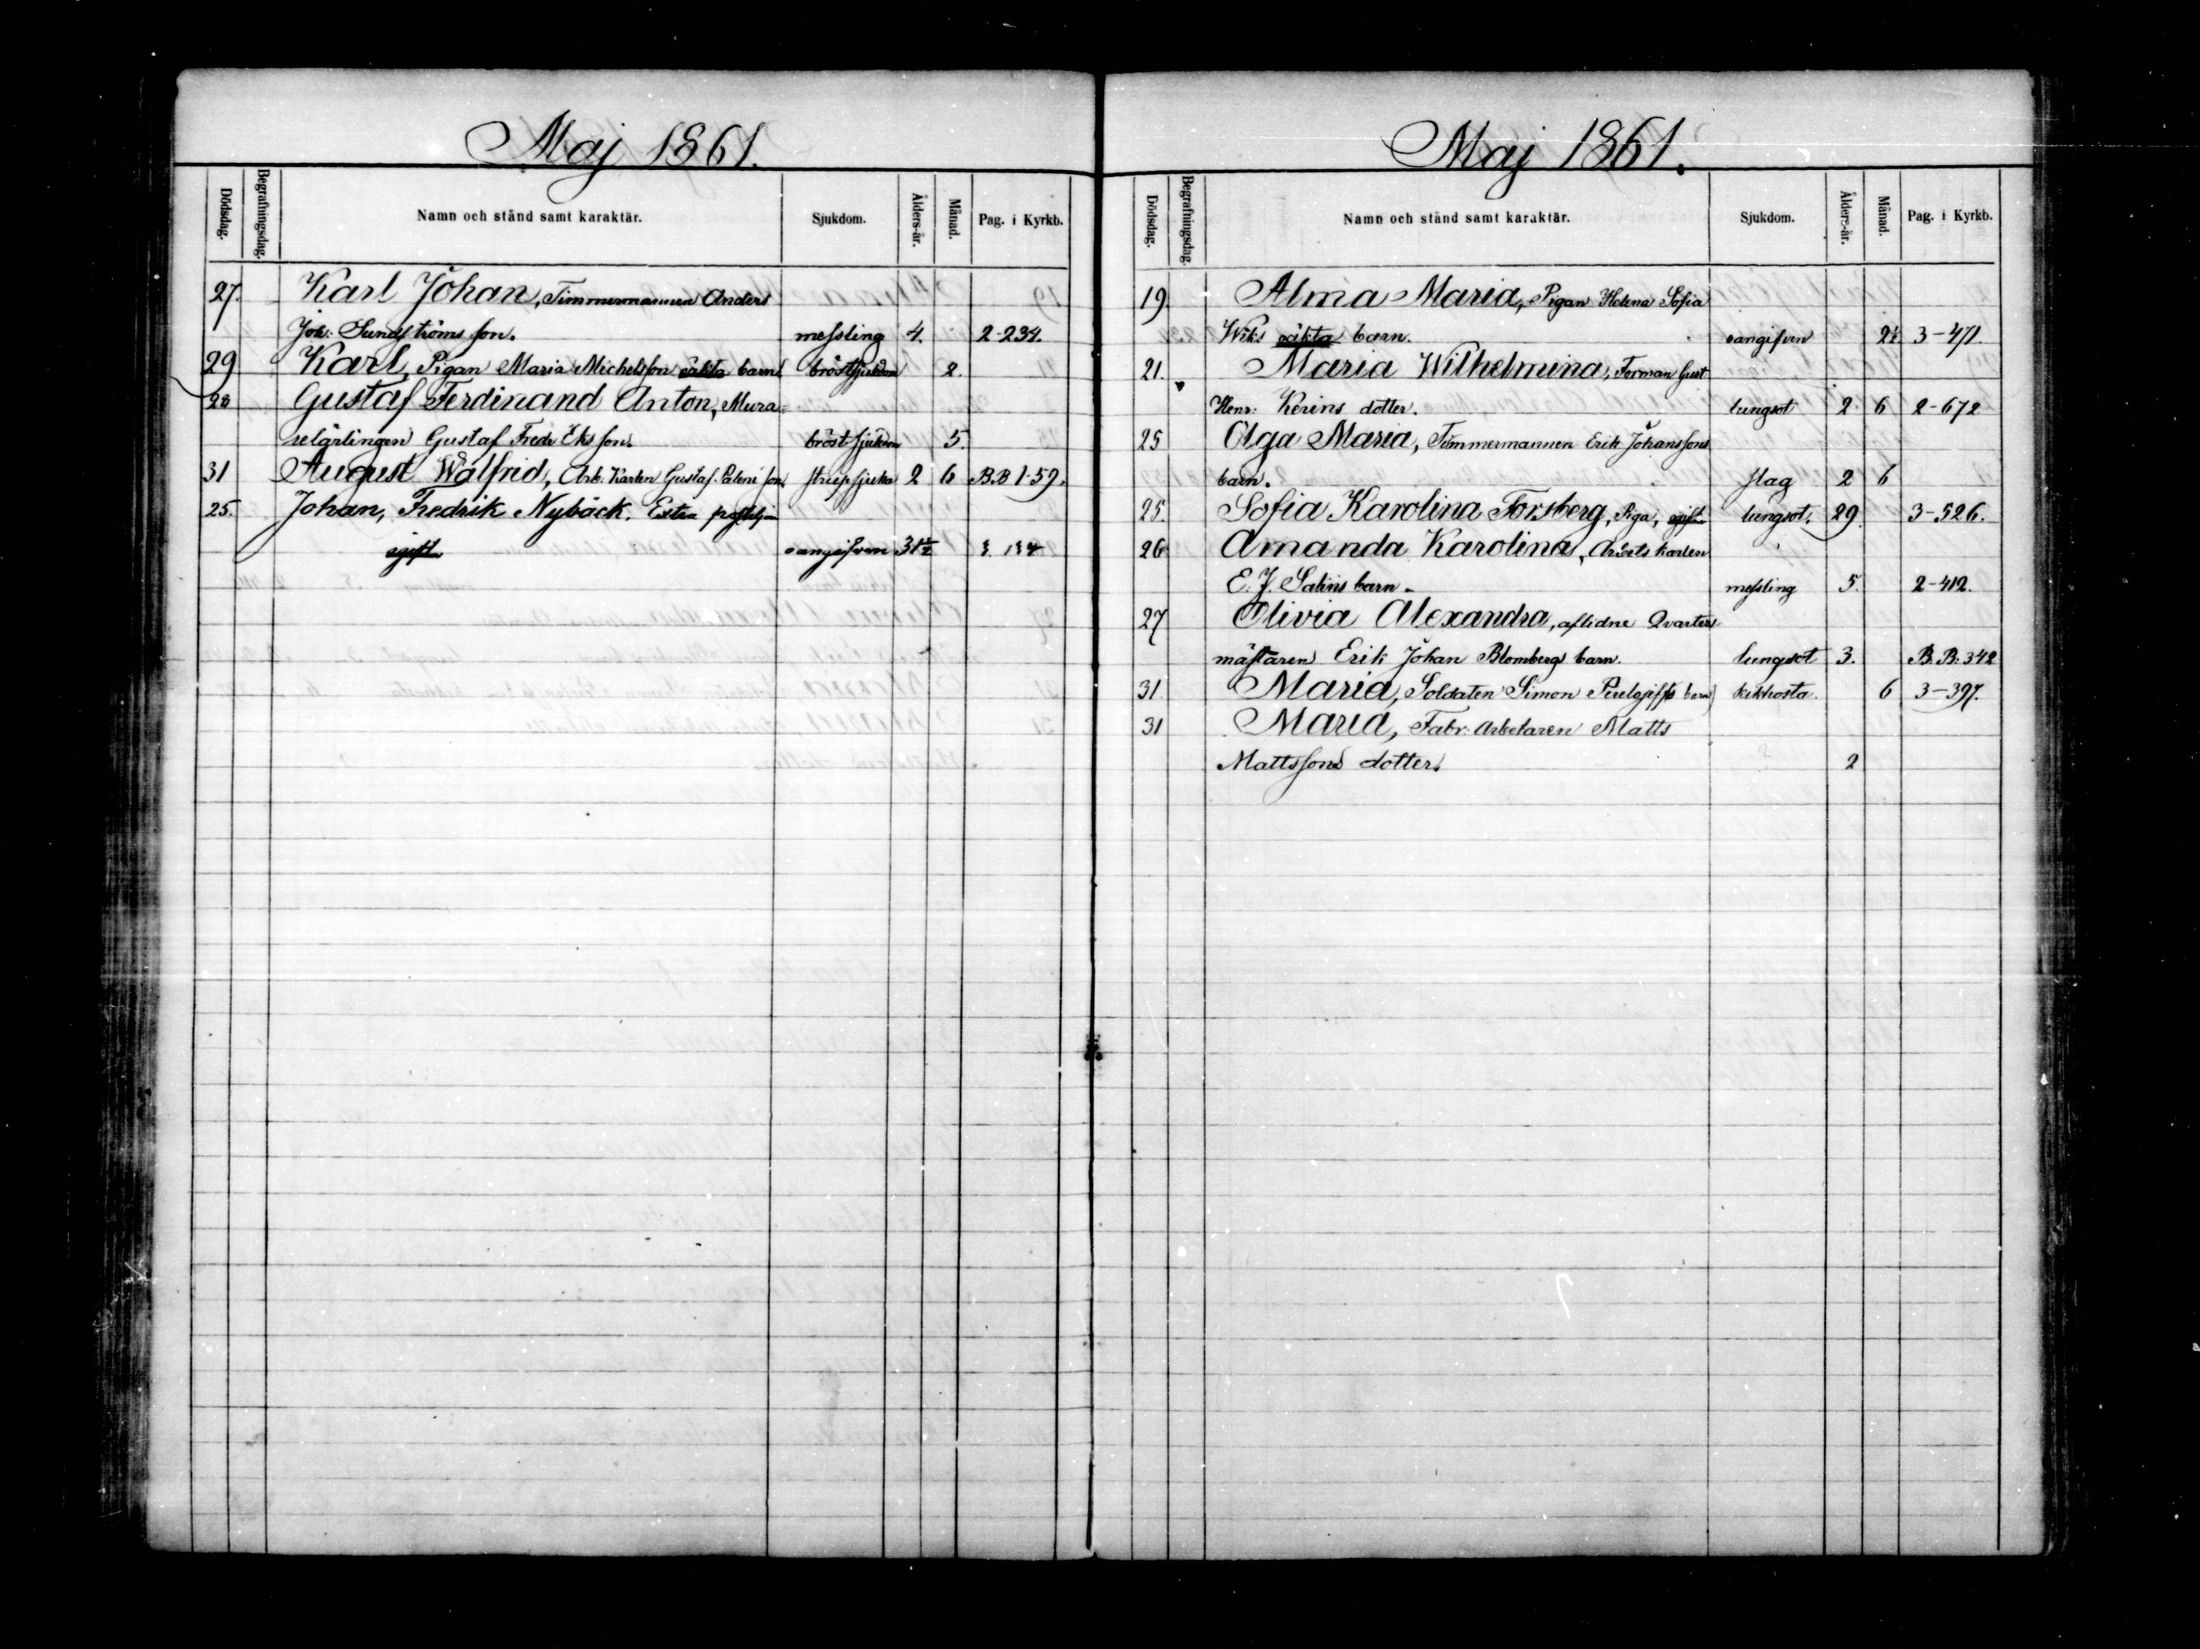 Maj 1861.
Dödsdag. Begrafningsdag. Namn och stånd samt karaktär. Sjukdom. Ålders-år. Månad. Pag. i Kyrkb.
27. Karl Johan, Timmermannen Anders
Joh: Sundströms son. messling 4. 2-234.
29 Karl, Pigan Maria Michelsson oäkta barn. bröstsjukdom 2.
28 Gustaf Ferdinand Anton, Mura-
relärlingen Gustaf Fredr Eks son. bröstsjukdom 5.
31 August Walfrid, Arb. Karlen Gustaf Paleni son. strupsjuka 2 6 B.B 1-59.
25. Johan, Fredrik Nybäck. Extra
ogift oangifven 31½
Maj 1861.
Dödsdag. Begrafningsdag. Namn och stånd samt karaktär. Sjukdom. Ålders-år. Månad. Pag. i Kyrkb.
19. Alma Maria, Pigan Helena Sofia
Wiks oäkta barn. oangifven 2½ 3-471.
21. Maria Wilhelmina, Forman Gust
Henr: Kerins dotter. lungsot 2 6 2-672
25 Olga Maria, Timmermannen Erik Johanssons
barn. slag 2 6
25. Sofia Karolina Forsberg, Piga, ogift lungsot. 29. 3-526.
26 Amanda Karolina, Arbets karlen
E. J. Salins barn. messling 5. 2-412.
27 Olivia Alexandra, aflidne Qvarters
mästaren Erik Johan Blombergs barn. lungsot 3. B.B. 342
31. Maria, Soldaten Simon barn kikhosta. 6 3-397.
31 Maria, Fabr. Arbetaren Matts
Mattssons dotter. 2